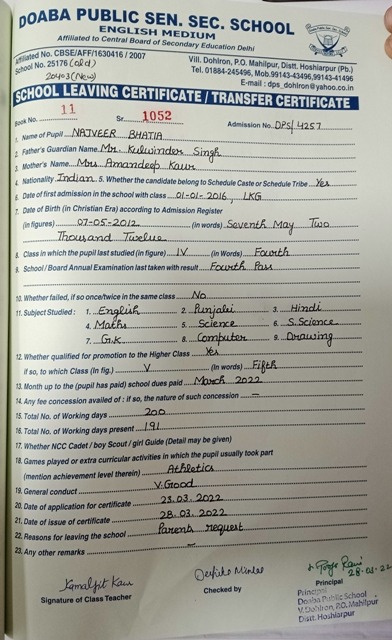 DOABA PUBLIC SEN. SEC. SCHOOL
ENGLISH MEDIUM
Affiliated to Central Board of Secondary Education Delhi
Affiliated No. CBSE/AFF/1630416 / 2007
Vill. Dohlron, P.O. Mahilpur, Distt. Hoshiarpur (Pb.)
School No. 25176 (old)
Tel. 01884-245496, Mob.99143-43496,99143-41496
20403 (New)
E-mail : dps_dohlron@yahoo.co.in
SCHOOL LEAVING CERTIFICATE / TRANSFER CERTIFICATE
Book No. 11 Sr. 1052 Admission No. DPS/4257
1. Name of Pupil NAJVEER BHATIA
2. Father's Guardian Name Mr. Kulwinder Singh
3. Mother's Name Mrs Amandeep Kaur
4. Nationality Indian 5. Whether the candidate belong to Schedule Caste or Schedule Tribe Yes
6. Date of first admission in the school with class 01-01-2016, LKG
7. Date of Birth (in Christian Era) according to Admission Register
(in figures) 07-05-2012 (in words) Seventh May Two
Thousand Twelve
8. Class in which the pupil last studied (in figure) IV (in Words) Fourth
9. School / Board Annual Examination last taken with result Fourth Pass
10. Whether failed, if so once/twice in the same class No
11. Subject Studied : 1. English 2. Punjabi 3. Hindi
4. Maths 5. Science 6. S.Science
7. G.K. 8. Computer 9. Drawing
12. Whether qualified for promotion to the Higher Class Yes
if so, to which Class (In fig.) V (In words) Fifth
13. Month up to the (pupil has paid) school dues paid March 2022
14. Any fee concession availed of : if so, the nature of such concession —
15. Total No. of Working days 200
16. Total No. of Working days present 191
17. Whether NCC Cadet / boy Scout / girl Guide (Detail may be given)
18. Games played or extra curricular activities in which the pupil usually took part
(mention achievement level therein) Athletics
19. General conduct V.Good
20. Date of application for certificate 23.03.2022
21. Date of issue of certificate 28.03.2022
22. Reasons for leaving the school Parents request
23. Any other remarks —
Kamaljit Kaur
28-03-22
Signature of Class Teacher
Checked by
Principal
Principal
Doaba Public School
V. Dohlron, P.O. Mahilpur
Distt. Hoshiarpur